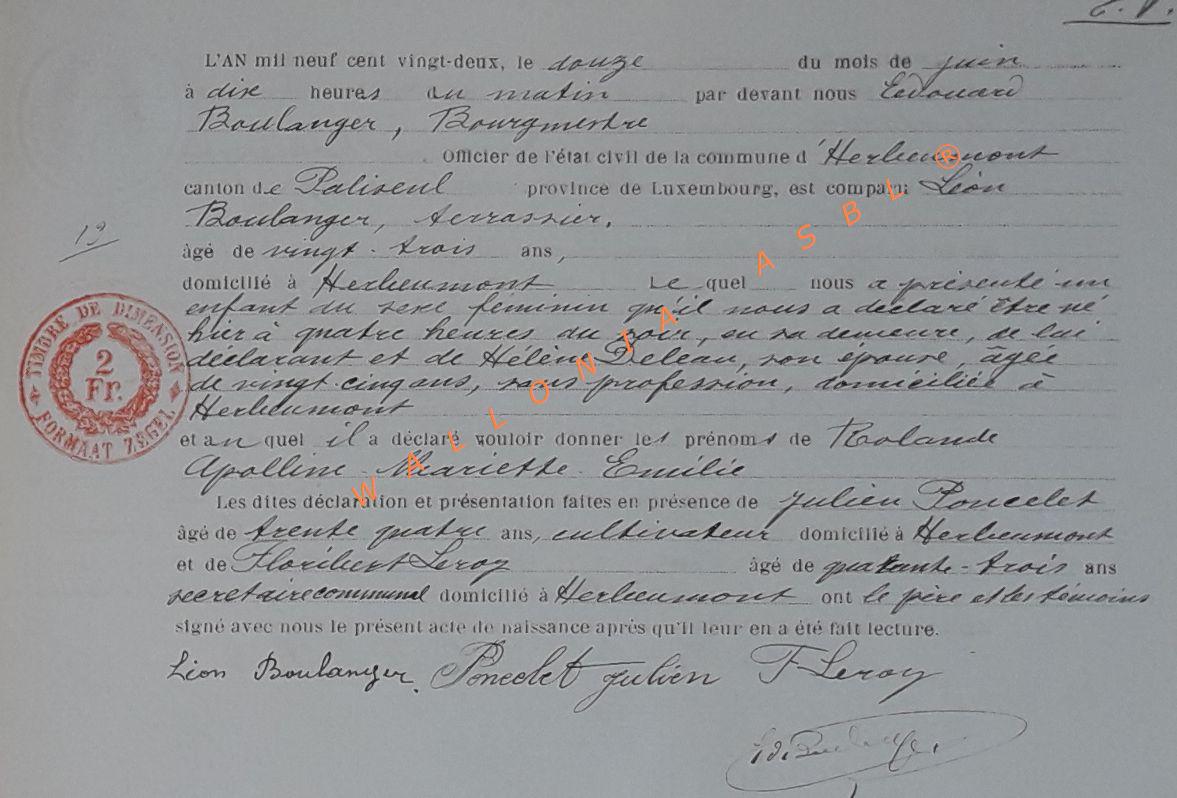 L'AN mil neuf cent vingt-deux, le douze du mois de juin
à dix heures du matin par devant nous Edouard
Boulanger, Bourgmestre
Officier de l'état civil de la commune d'Herbeumont
canton de Paliseul province de Luxembourg, est comparu Léon
Boulanger, terrassier,
âgé de vingt-trois ans,
19
domicilié à Herbeumont Le quel nous a présenté un
enfant du sexe féminin qu'il nous a déclaré être né
hier à quatre heures du soir, en sa demeure, de lui
déclarant et de Hélène Deleau, son épouse âgée
de vingt-cinq ans, sans profession, domiciliée à
Herbeumont
et au quel il a déclaré vouloir donner les prénoms de Rolande
Apolline-Mariette-Emilie
Les dites déclaration et présentation faites en présence de Julien Poncelet
âgé de trente quatre ans, cultivateur domicilié à Herbeumont
et de Floribert Leroy âgé de quarante-trois ans
secrétaire communal domicilié à Herbeumont ont le père et les témoins
signé avec nous le présent acte de naissance après qu'il leur en a été fait lecture.
Léon Boulanger. Poncelet Julien F Leroy
TIMBRE DE DIMENSION
2
Fr.
FORMAAT ZEGEL
WALLONIA ASBL ®